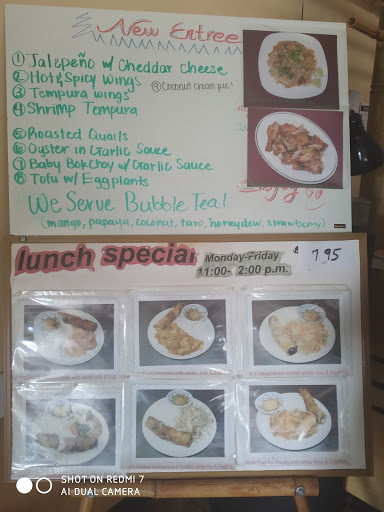 New Entree
① Jalepeño w/ Cheddar Cheese
② Hot&Spicy Wings
③ Tempura Wings
④ Shrimp Tempura
⑨ Coconut Cream pie!
⑤ Roasted Quails
⑥ Oyster in Garlic Sauce
⑦ Baby BokChoy w/ Garlic Sauce
⑧ Tofu w/ Eggplants
Enjoy
We Serve Bubble Tea!
(mango, papaya, coconut, taro, honeydew, strawberry)
lunch special
Monday-Friday
11:00- 2:00 p.m.
$ 7.95
SHOT ON REDMI 7
AI DUAL CAMERA